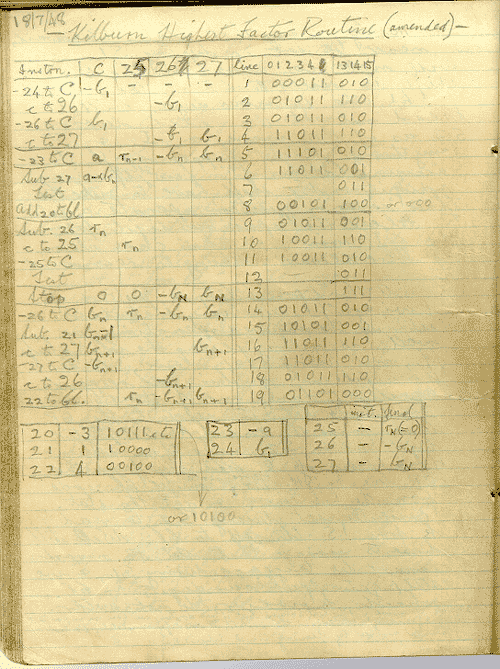 18/7/48
Kilburn Highest Factor Routine (amended)
Instrn. C 25 26 27 line 01234 131415
-24 to C -b1 - - - 1 00011 010
c to 26 -b1 2 01011 110
-26 to C b1 3 01011 010
c to 27 -b1 b1 4 11011 110
-23 to C a rn-1 -bn bn 5 11101 010
Sub. 27 a-bn 6 11011 001
Test 7 011
Add 20 to Cl. 8 00101 100 or 000
Sub. 26 rn 9 01011 001
c to 25 rn 10 10011 110
-25 to C 11 10011 010
Test 12 011
Stop 0 0 -bN bN 13 111
-26 to C bn rn -bn bn 14 01011 010
Sub. 21 bn+1 15 10101 001
c to 27 bn+1 bn+1 16 11011 110
-27 to C -bn+1 17 11011 010
c to 26 -bn+1 18 01011 110
22 to Cl. rn -bn+1 bn+1 19 01101 000
init. final
20 -3 10111 etc 23 -a 25 - rN(=0)
21 1 10000 24 b1 26 - -bN
22 4 00100 27 - bN
or 10100